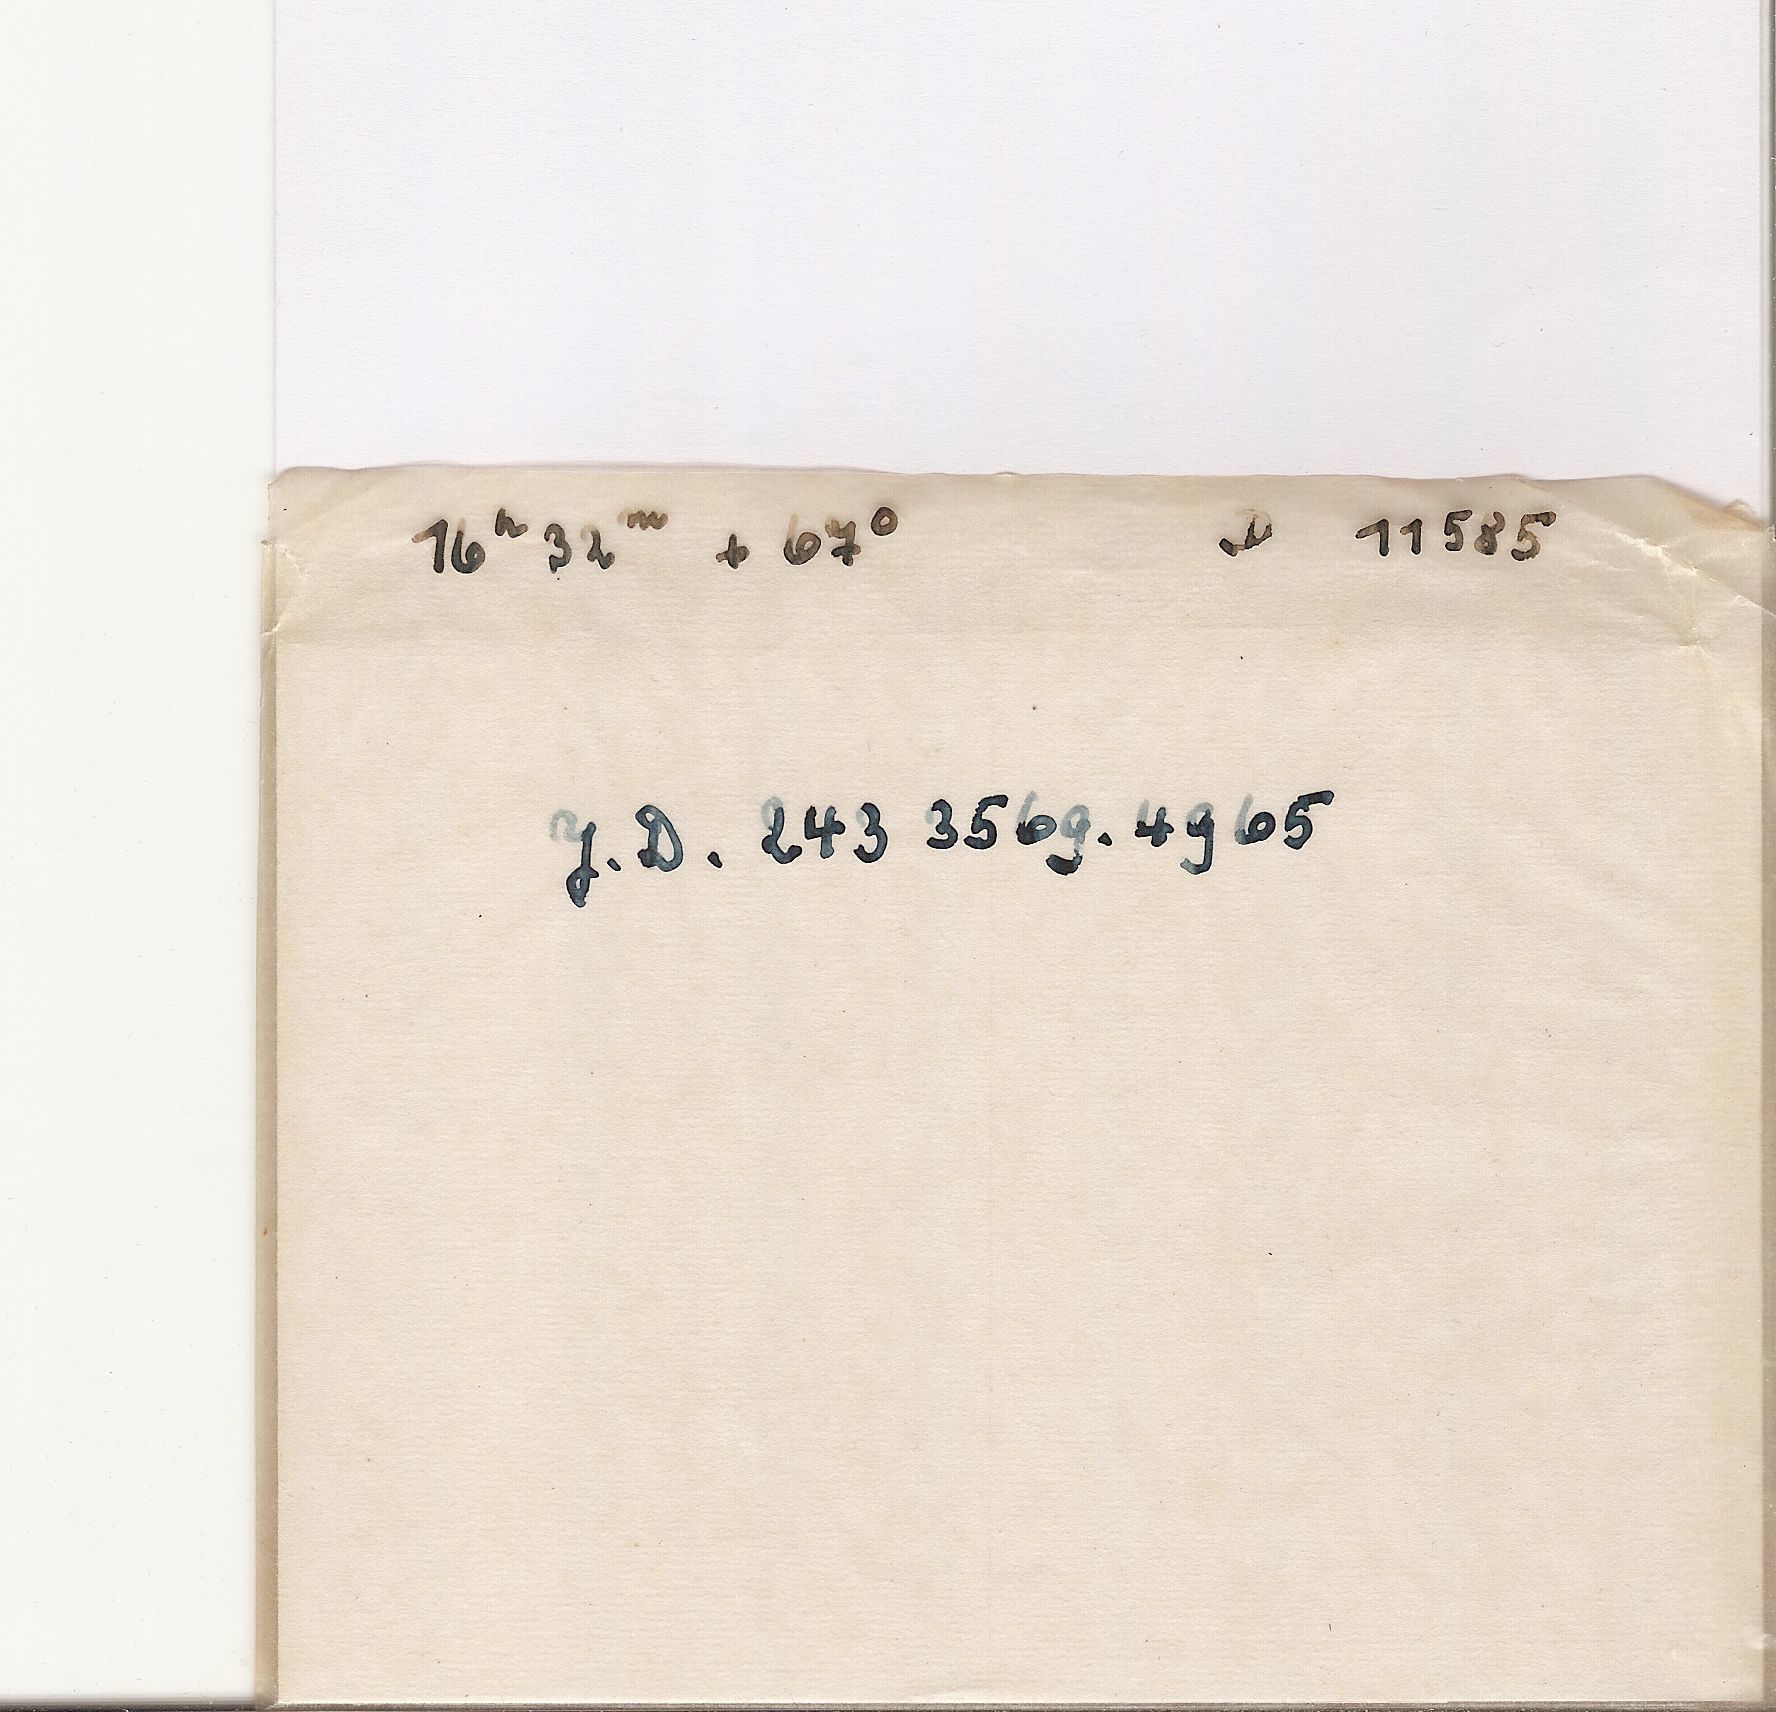 16ʰ 32ᵐ + 67⁰ 11585
J.D. 243 3569.4965